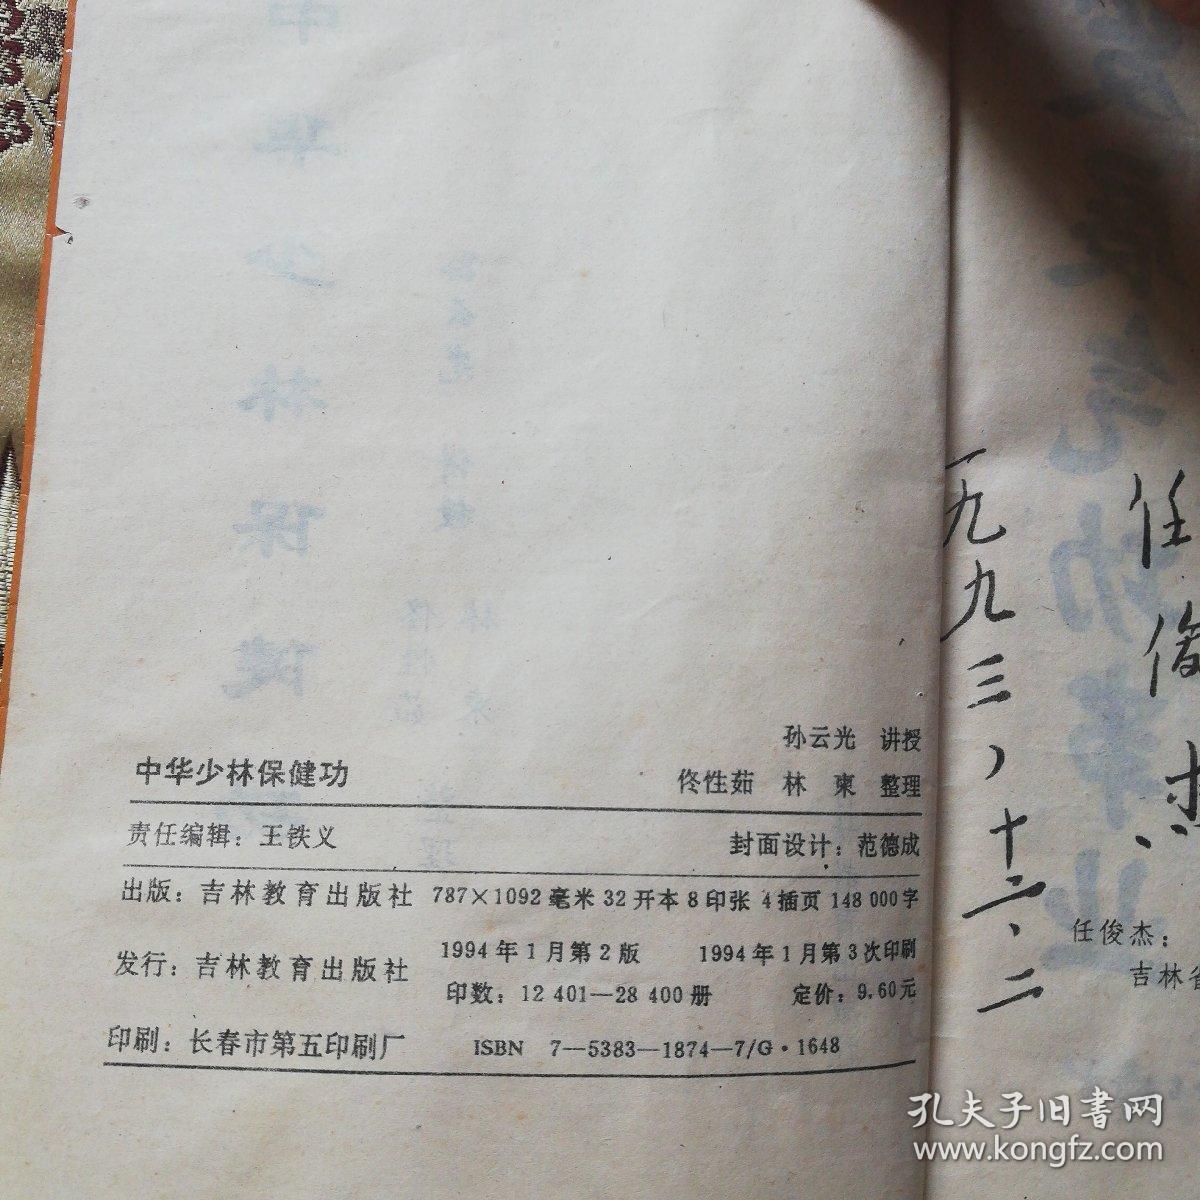 中华少林保健功
孙云光 讲授
佟性茹 林柬 整理
责任编辑：王铁义 封面设计：范德成
出版：吉林教育出版社 787×1092毫米32开本8印张4插页148 000字
发行：吉林教育出版社 1994年1月第2版 1994年1月第3次印刷
印数：12 401—28 400册 定价：9.60元
印刷：长春市第五印刷厂 ISBN 7—5383—1874—7/G·1648
任俊杰
一九九三、十二、二
任俊杰：
吉林省
孔夫子旧书网
www.kongfz.com